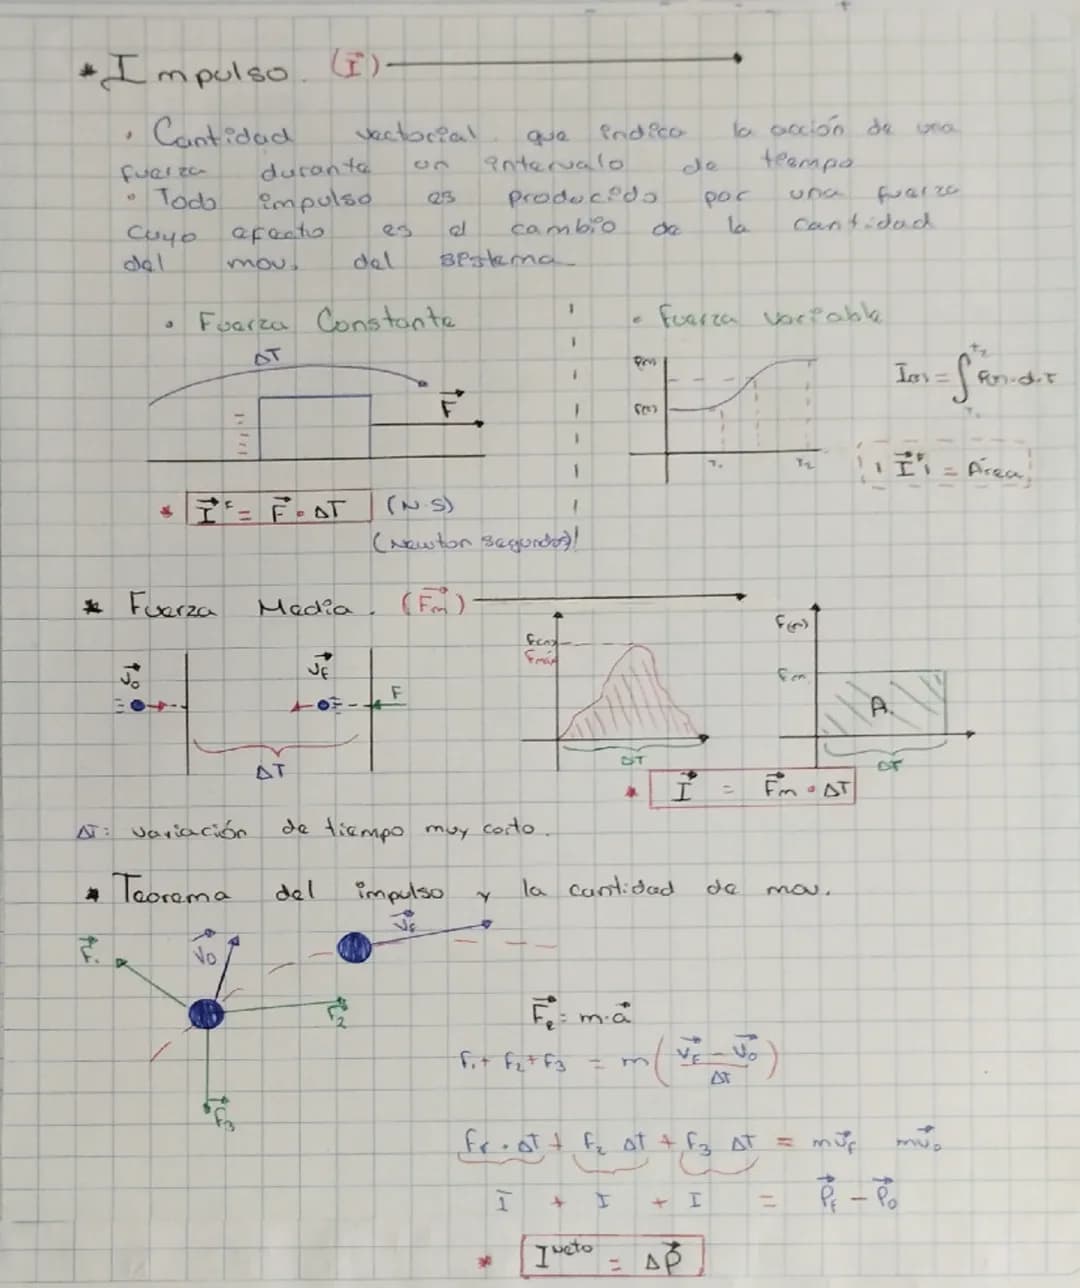 * Impulso. (I⃗)
• Cantidad vectorial que indica la acción de una
fuerza durante un intervalo de tiempo
• Todo impulso es producido por una fuerza
cuyo efecto es el cambio de la cantidad
del mov. del sistema
• Fuerza Constante
• Fuerza variable
ΔT
F⃗
F(N)
F(N)
T₁
T₂
I(N) = ∫ F(N)·d·T
T₂
T₁
| I⃗ᶠ | = Área
* I⃗ᶠ = F⃗ · ΔT (N·S)
(Newton segundos)
* Fuerza Media. (F⃗m)
V⃗₀
V⃗F
F
ΔT
F(N)
Fmáx
ΔT
F(N)
Fm
A.
ΔT
* I⃗ = F⃗m · ΔT
ΔT: variación de tiempo muy corto.
* Teorema del impulso y la cantidad de mov.
F⃗₁
V⃗₀
V⃗F
F⃗₂
F⃗₃
F⃗R = m·a⃗
F₁ + F₂ + F₃ = m( (V⃗F – V⃗₀) / ΔT )
F₁ · ΔT + F₂ ΔT + F₃ ΔT = mv⃗F mv⃗₀
I + I + I = P⃗F – P⃗₀
* Iᴺᵉᵗᵒ = ΔP⃗